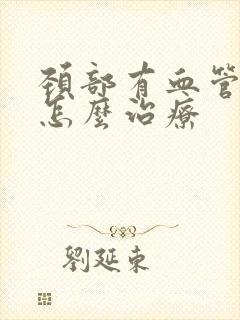 頚部有血管
怎麼治療
劉延東